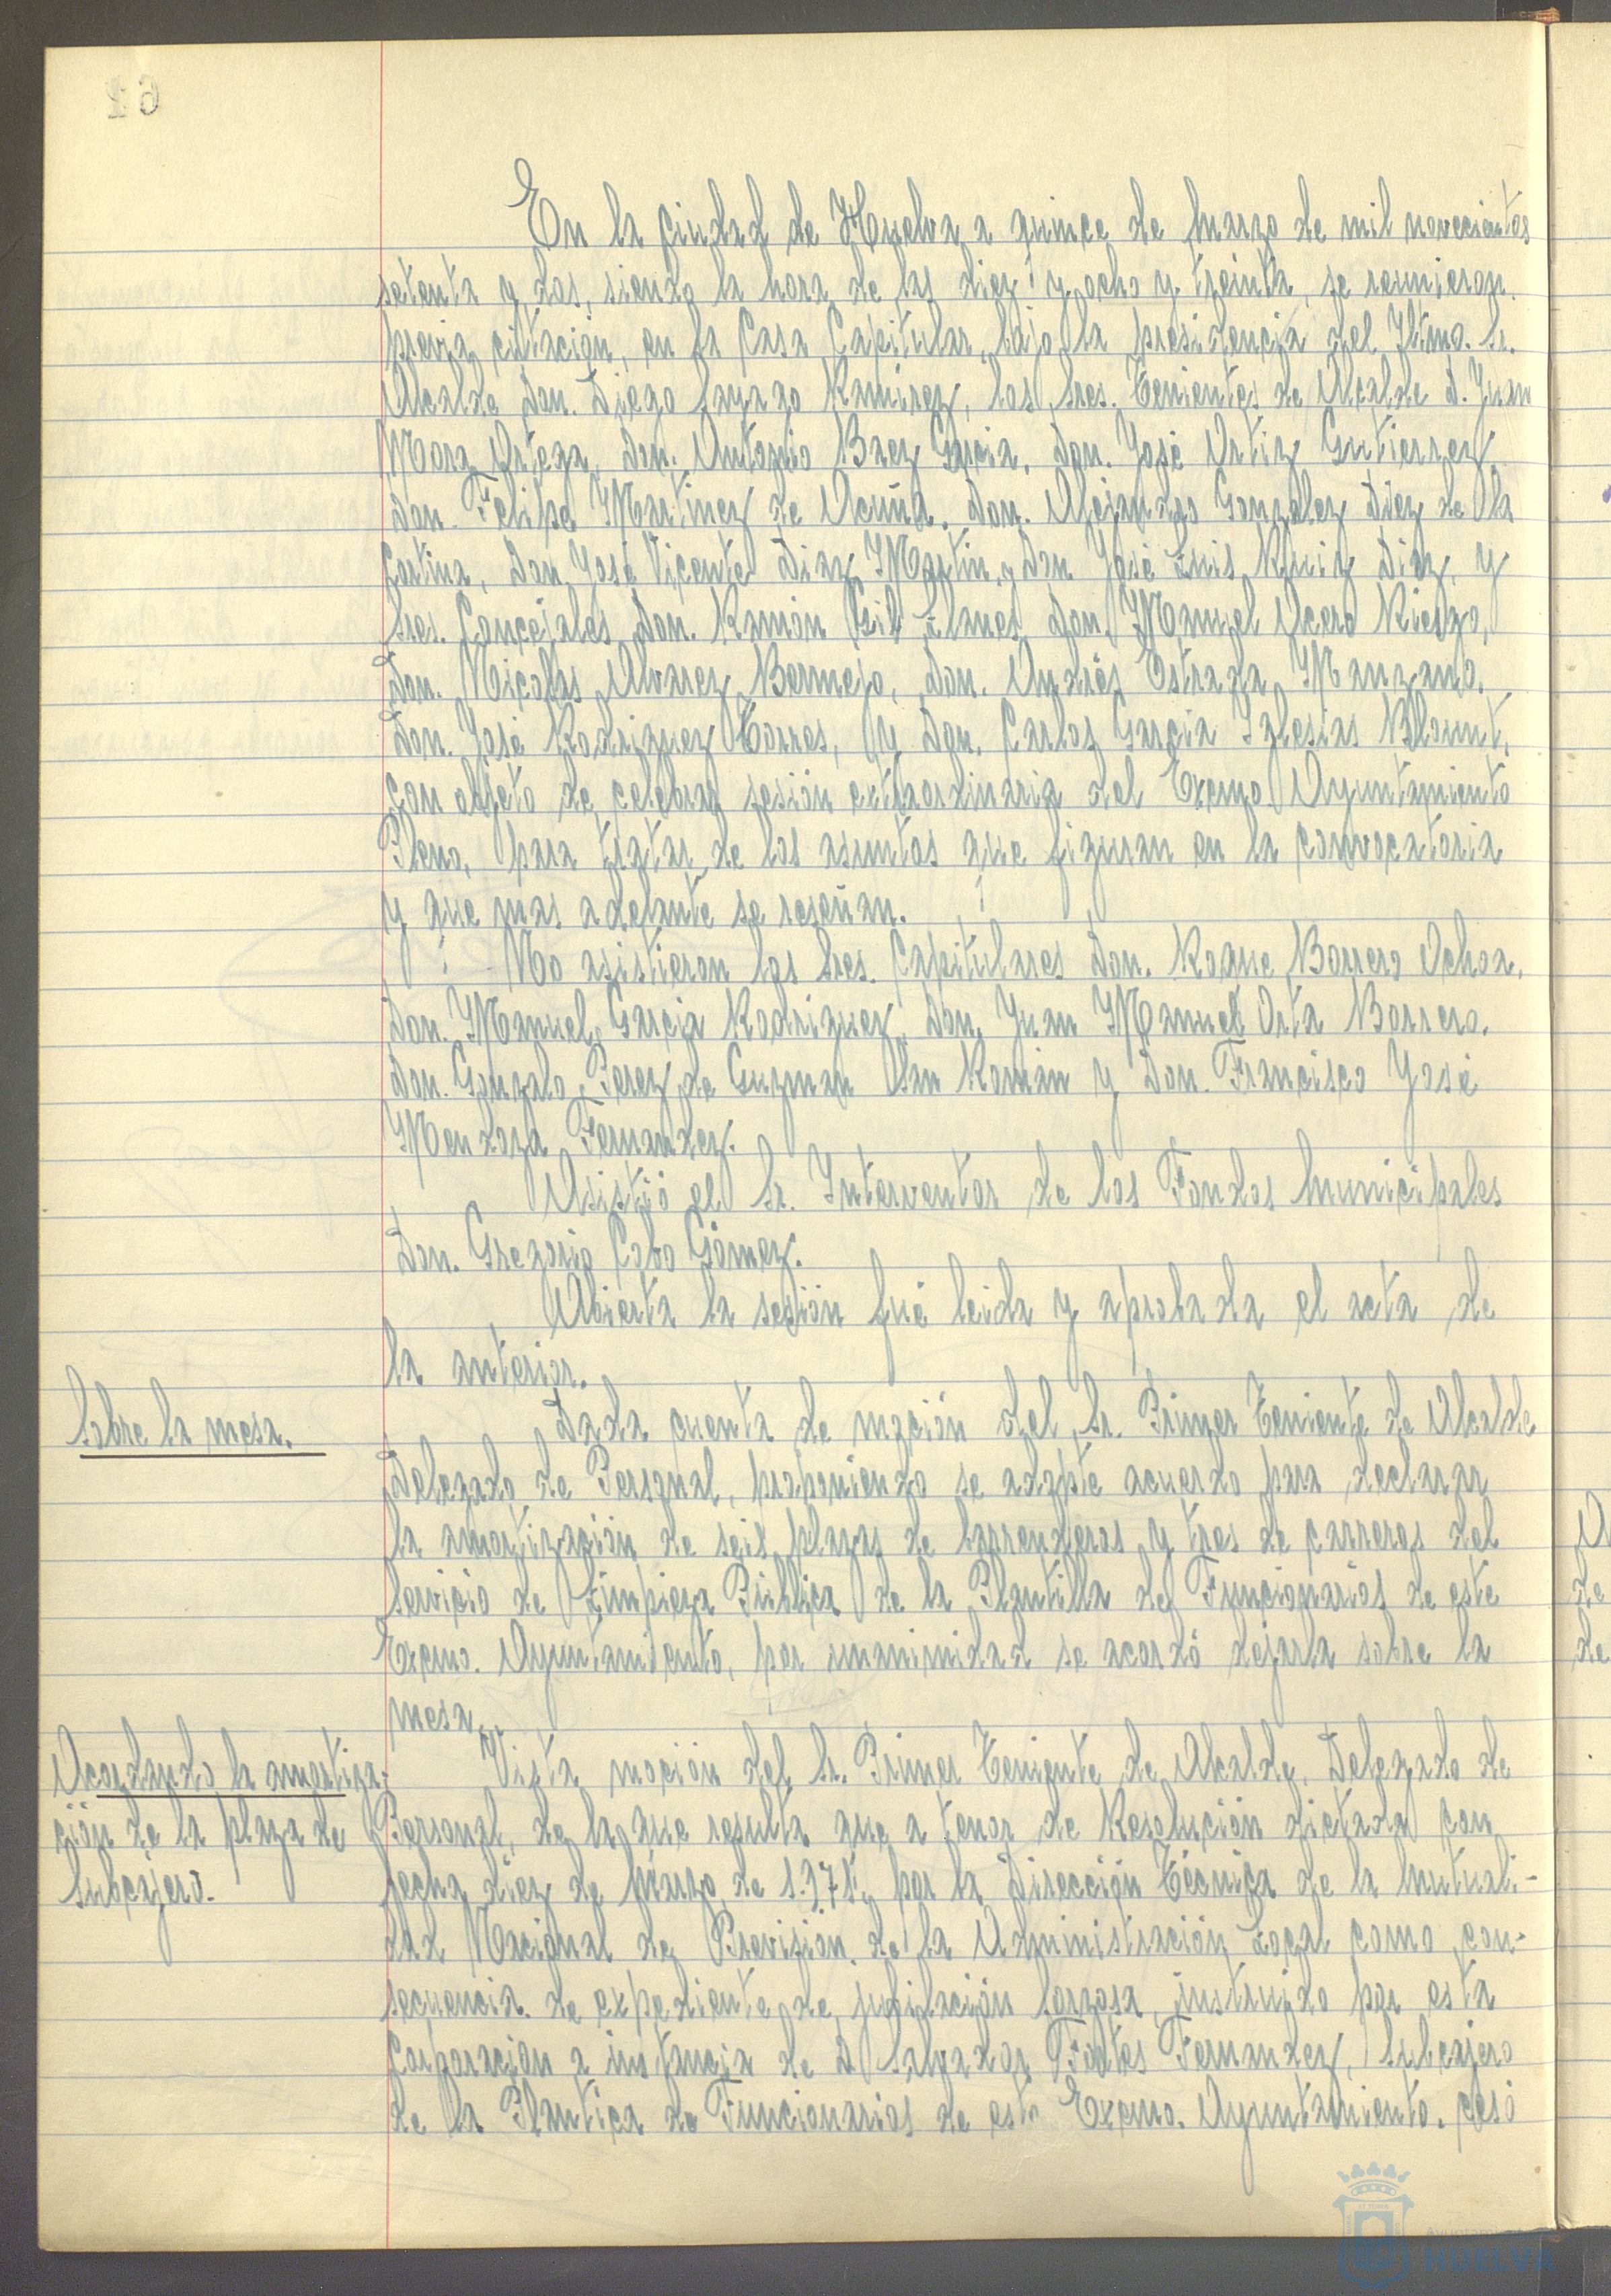 En la Ciudad de Huelva a quince de Marzo de mil novecientos
setenta y dos, siendo la hora de las diez y ocho y treinta, se reunieron,
previa citación, en la Casa Capitular, bajo la presidencia del Iltmo. Sr.
Alcalde Don. Diego Sayago Ramirez, los Sres. Tenientes de Alcalde D. Juan
Mora Ortega, Don. Antonio Baez Garcia, Don. José Ortiz Gutierrez
Don. Felipe Martinez de Acuña, Don. Alejandro Gonzalez Diez de la
Cortina, Don José Vicente Diaz Martin, y Don José Luis Ruiz Diaz, y
Sres. Concejales Don. Ramón Gil Llanes Don. Manuel Acero Riesgo,
Don. Nicolas Alvarez Bermejo, Don. Andrés Estrada Manzano,
Don. José Rodriguez Torres, y Don. Carlos Garcia Iglesias Blount,
con objeto de celebrar sesión extraordinaria del Excmo. Ayuntamiento
Pleno, para tratar de los asuntos que figuran en la convocatoria
y que mas adelante se reseñan.
No asistieron los Sres. Capitulares Don. Roque Borrero Ochoa,
Don. Manuel Garcia Rodriguez, Don. Juan Manuel Orta Borrero,
Don. Gonzalo Perez de Guzman San Román y Don. Francisco José
Mendoza Fernandez.
Asistió el Sr. Interventor de los Fondos Municipales
Don. Gregorio Cobo Gómez.
Abierta la sesión fué leida y aprobada el acta de
la anterior.
Sobre la mesa.
Dada cuenta de moción del Sr. Primer Teniente de Alcalde
Delegado de Personal, proponiendo se adopte acuerdo para declarar
la amortización de seis plazas de barrenderos y tres de carreros del
Servicio de Limpieza Pública de la Plantilla de Funcionarios de este
Excmo. Ayuntamiento, por unanimidad se acordó dejarla sobre la
mesa.
Acordando la amortiza-
ción de la plaza de
Subcajero.
Vista moción del Sr. Primer Teniente de Alcalde, Delegado de
Personal, de la que resulta que a tenor de Resolución dictada con
fecha diez de Marzo de 1.971, por la Dirección Técnica de la Mutuali-
dad Nacional de Previsión de la Administración Local como con-
secuencia de expediente de jubilación forzosa, instruido por esta
Corporación a instancia de D Salvador Fontes Fernandez, Subcajero
de la Plantica de Funcionarios de este Excmo. Ayuntamiento, cesó
HUELVA